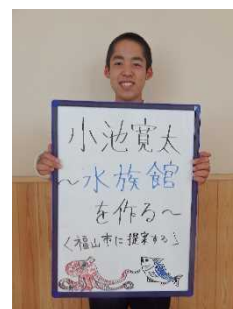 小池寛太
~水族館
を作る~
<福山市に提案する>